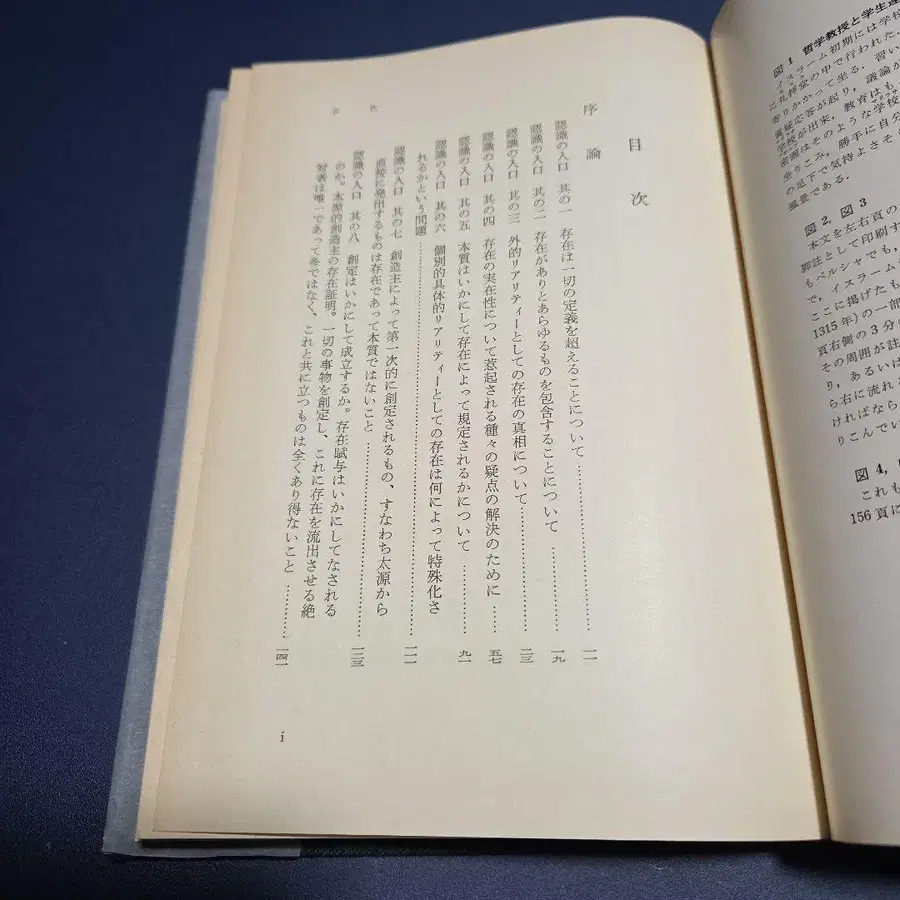 図1 哲学教授と学生達
イスラーム初期には学校
に礼拝堂の中で行われた.
寄りかかって坐る. 習い
質疑応答が起り, 議論が
学校が出来, 教育はも
密画はそのような学校
坐りこみ, 勝手に自分
の足下で気持よさそ
風景である.
図2, 図3
本文を左右頁の
脚註として印刷す
もペルシャでも,
で, イスラーム
ここに掲げたも
1315年)の一部
頁右側の3分の
その周囲が註
り, あるいは
ら右に流れる
ければなら
りこんでい
図4,
これも
156頁に
目次
序論
認識の入口 其の一 存在は一切の定義を超えることについて……………………一一
認識の入口 其の二 存在がありとあらゆるものを包含することについて……………一九
認識の入口 其の三 外的リアリティーとしての存在の真相について……………二三
認識の入口 其の四 存在の実在性について惹起される種々の疑点の解決のために……五七
認識の入口 其の五 本質はいかにして存在によって規定されるかについて…………九一
認識の入口 其の六 個別的具体的リアリティーとしての存在は何によって特殊化さ
れるかという問題……………………………………一一一
認識の入口 其の七 創造主によって第一次的に創定されるもの、すなわち太源から
直接に発出するものは存在であって本質ではないこと……………………一二三
認識の入口 其の八 創定はいかにして成立するか。存在賦与はいかにしてなされる
のか。本源的創造主の存在証明。一切の事物を創定し、これに存在を流出させる絶
対者は唯一であって多ではなく、これと共に立つものは全くあり得ないこと…………一四一
目次
i